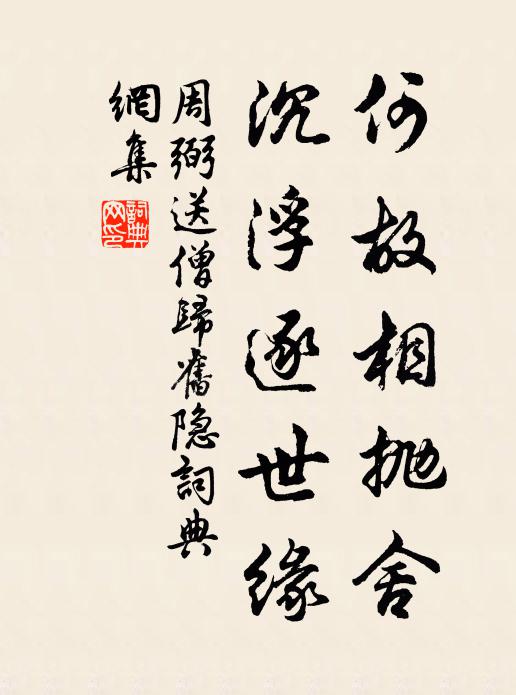 何故相抛舍
沉浮逐世缘
周弼送僧歸舊隐詞典
網集
詞典
网印